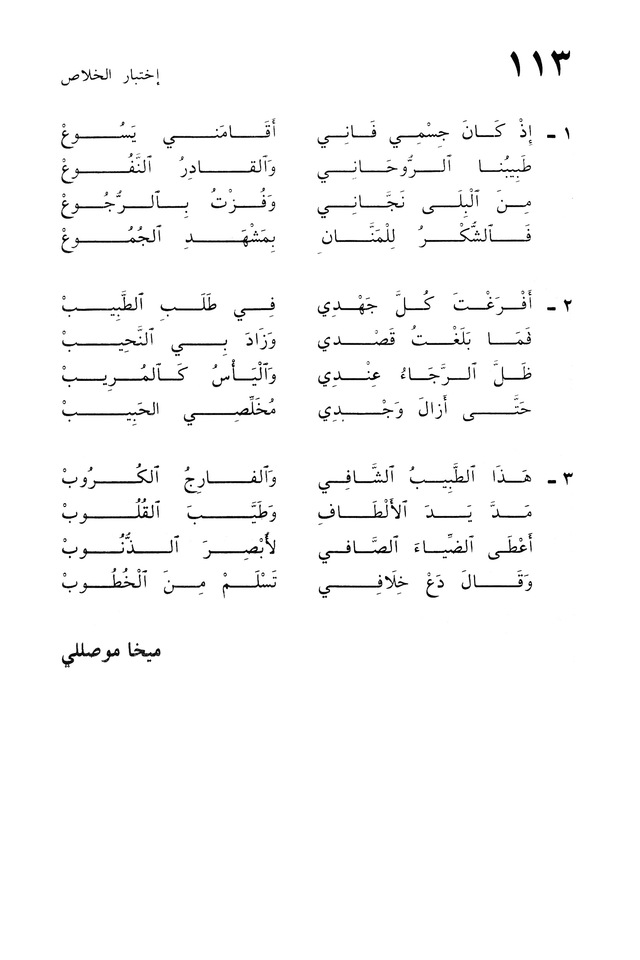 ١١٣
إختبار الخلاص
١ ـ إِذْ كَـانَ جِسْمِي فَـانِي أَقَـامَنـي يَسُوعْ
طَبِيبُنـا الرُّوحَـانِي وَالقـادِرُ النَّفُوعْ
مِـنَ الْبِلَـى نَجَّـانِي وَفُـزْتُ بِـالرُّجُوعْ
فَـالشُّكْـرُ لِلْمَنَّـانِ بِمَشْهَـدِ الجُمُوعْ
٢ ـ أَفْـرَغْتَ كُـلَّ جَهْـدِي فِـي طَلَـبِ الطَّبِيبْ
فَمَـا بَلَغْتُ قَصْـدِي وَزَادَ بِـي النَّحِيبْ
ظَـلَّ الـرَّجَـاءُ عِنْـدِي وَالْيَـأْسُ كَـالمُرِيبْ
حَتَّـى أَزالَ وَجْـدِي مُخَلِّصِـي الحَبِيبْ
٣ ـ هَـذَا الطَّبِيبُ الشَّافِي وَالفـارِجُ الكُرُوبْ
مَـدَّ يَـدَ الأَلْطَـافِ وَطَيَّـبَ القُلُوبْ
أَعْطَى الضِّيَاءَ الصَّافِي لأُبْصِـرَ الـذُّنُوبْ
وَقَـالَ دَعْ خِلَافِي تَسْلَـمْ مِـنَ الْخُطُوبْ
ميخا موصللي